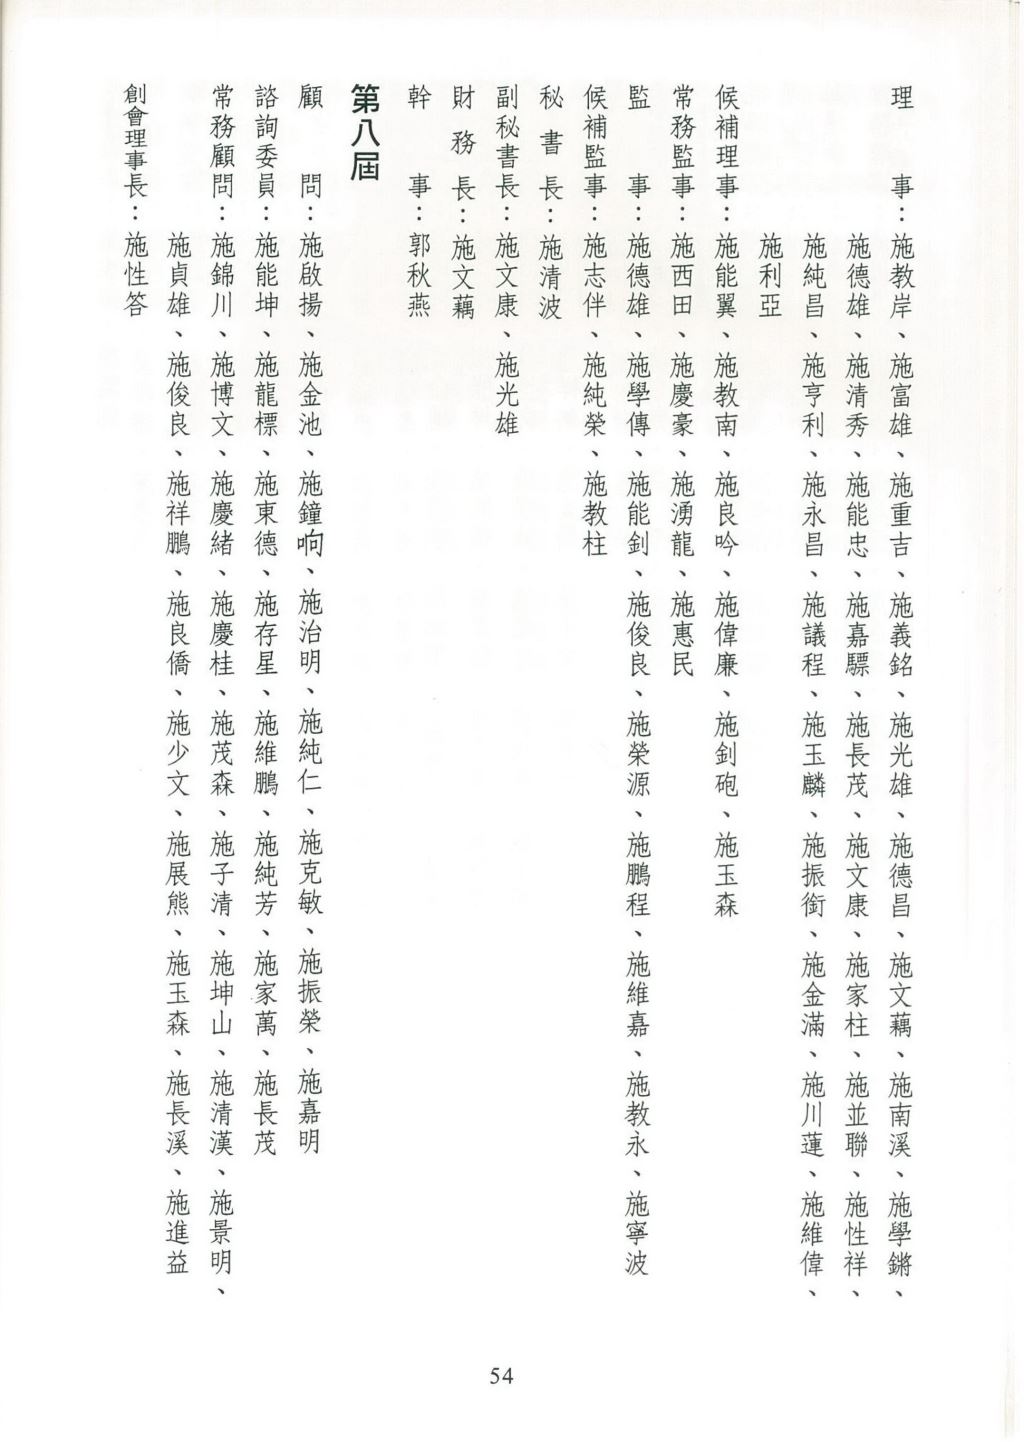 理　　事：施教岸、施富雄、施重吉、施義銘、施光雄、施德昌、施文藕、施南溪、施學鏘、
施德雄、施清秀、施能忠、施嘉驃、施長茂、施文康、施家柱、施並聯、施性祥、
施純昌、施亨利、施永昌、施議程、施玉麟、施振銜、施金滿、施川蓮、施維偉、
施利亞
候補理事：施能翼、施教南、施良吟、施偉廉、施釗砲、施玉森
常務監事：施西田、施慶豪、施湧龍、施惠民
監　　事：施德雄、施學傳、施能釗、施俊良、施榮源、施鵬程、施維嘉、施教永、施寧波
候補監事：施志伴、施純榮、施教柱
秘 書 長：施清波
副秘書長：施文康、施光雄
財 務 長：施文藕
幹　　事：郭秋燕
第八屆
顧　　問：施啟揚、施金池、施鐘响、施治明、施純仁、施克敏、施振榮、施嘉明
諮詢委員：施能坤、施龍標、施東德、施存星、施維鵬、施純芳、施家萬、施長茂
常務顧問：施錦川、施博文、施慶緒、施慶桂、施茂森、施子清、施坤山、施清漢、施景明、
施貞雄、施俊良、施祥鵬、施良僑、施少文、施展熊、施玉森、施長溪、施進益
創會理事長：施性答
54